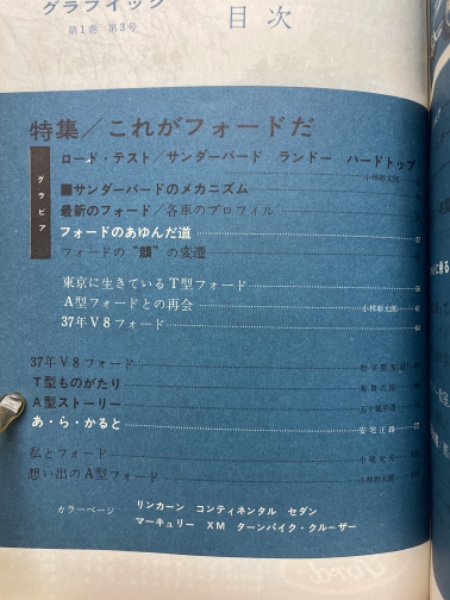 グラフイック
第1巻 第3号
目次
特集/これがフォードだ
グラビア
ロード・テスト/サンダーバード ランドー ハードトップ
小林彰太郎
■サンダーバードのメカニズム
最新のフォード/各車のプロフィル
フォードのあゆんだ道 37
フォードの“顔”の変遷
東京に生きているT型フォード
A型フォードとの再会 小林彰太郎
37年V8フォード
37年V8フォード
T型ものがたり
A型ストーリー
あ・ら・かると 安宅正路 77
私とフォード
想い出のA型フォード 小林彰太郎
カラーページ リンカーン コンティネンタル セダン
マーキュリー XM ターンパイク・クルーザー